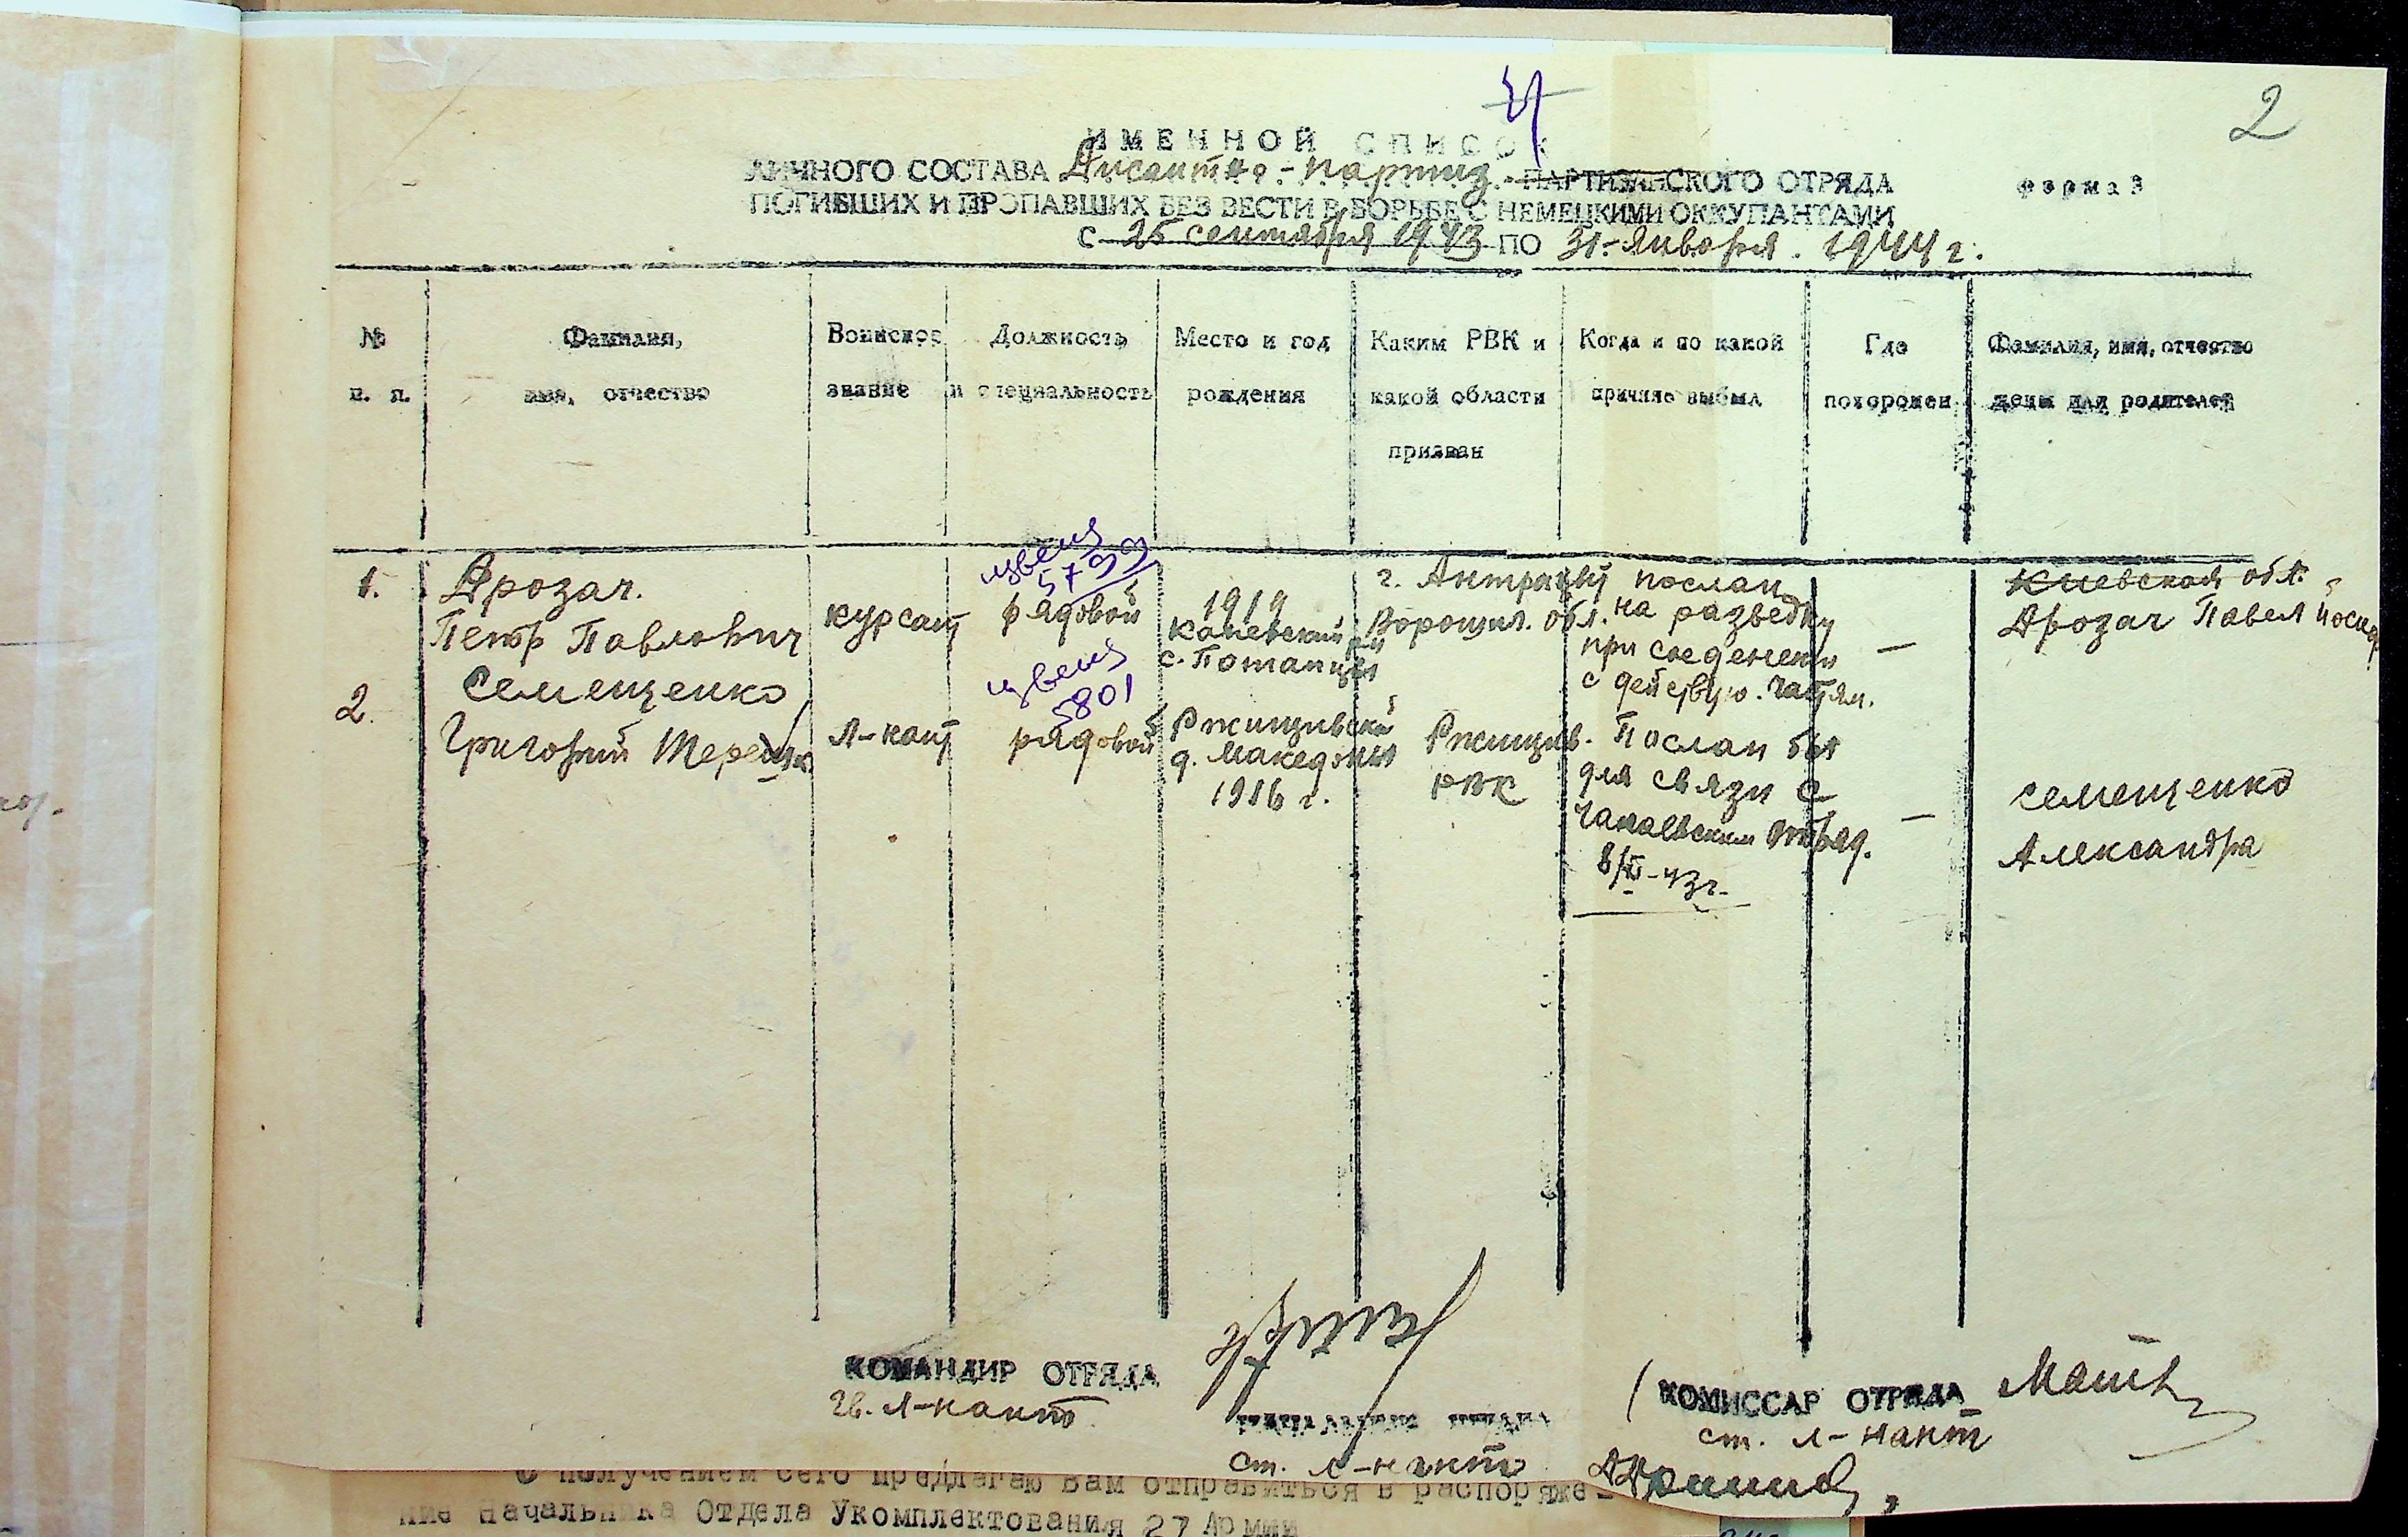 2
ИМЕННОЙ СПИСОК
ЛИЧНОГО СОСТАВА Дисантно-партиз. ПАРТИЗАНСКОГО ОТРЯДА
форма 3
ПОГИБШИХ И ПРОПАВШИХ БЕЗ ВЕСТИ В БОРЬБЕ С НЕМЕЦКИМИ ОККУПАНТАМИ
С 25 сентября 1943 ПО 31-Января. 1944 г.
№ п. п.
Фамилия, имя, отчество
Воинское звание
Должность и специальность
Место и год рождения
Каким РВК и какой области призван
Когда и по какой причине выбыл
Где похоронен
Фамилия, имя, отчество жены или родителей
1.
Дрозач.
Петр Павлович
курсант
извещ
5799
рядовой
1919
Каневский р-н
с. Потапцы
г. Антрацит
Ворошил. обл.
послан
на разведку
при соеденении
с действую. частям.
—
Киевская обл.
Дрозач Павел
2.
Семещенко
Григорий
л-нант
извещ
5801
рядовой
Ржищивский
д. Македоны
1916 г.
Ржищив.
РВК
Послан был
для связи с
Чапаевским отряд.
8/XI-43г.
—
Семещенко
Александра
КОМАНДИР ОТРЯДА
гв. л-нант
ст. л-нант
КОМИССАР ОТРЯДА
ст. л-нант
С получением сего предлагаю Вам отправиться в распоряже-
ние Начальника Отдела Укомплектования 27 Армии